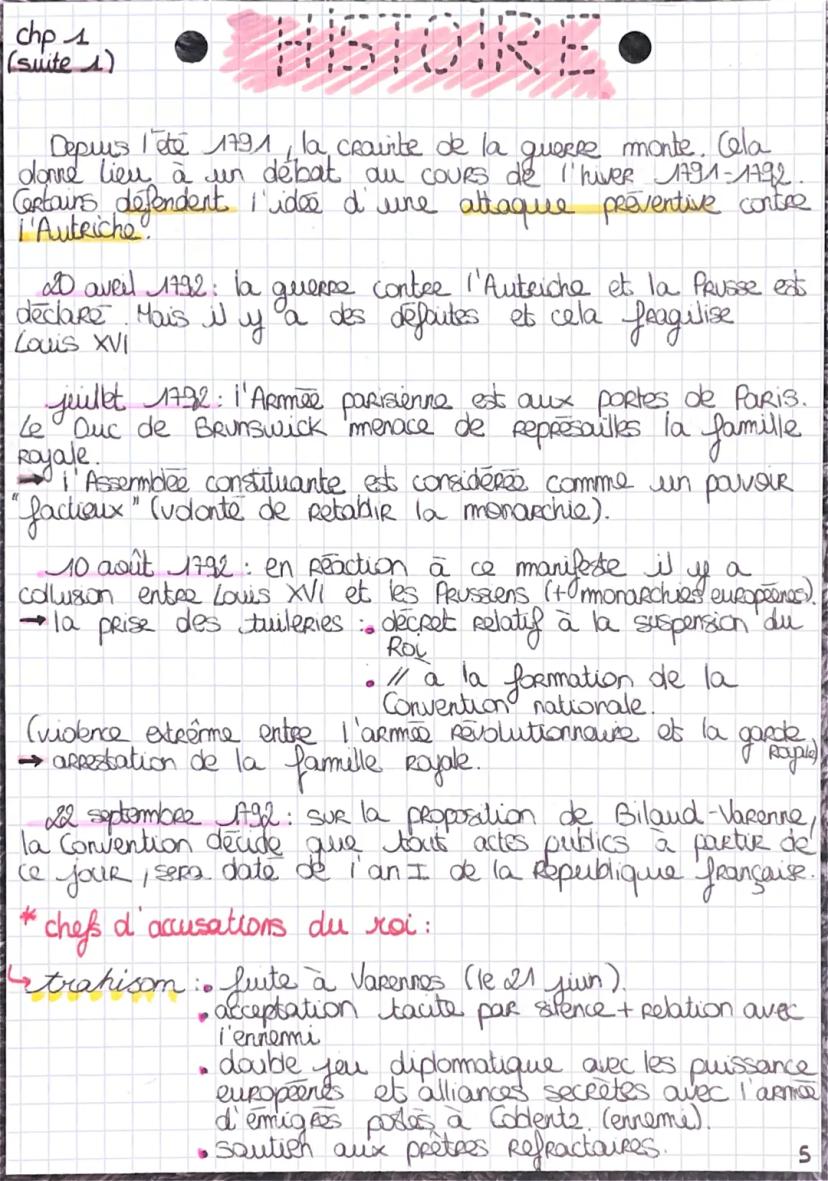 chp 1
(suite 1)
HISTOIRE
Depuis l'été 1791, la crainte de la guerre monte. Cela
donne lieu à un débat au cours de l'hiver 1791-1792.
Certains défendent l'idée d'une attaque préventive contre
l'Autriche.
20 avril 1792 : la guerre contre l'Autriche et la Prusse est
déclaré. Mais il y a des défaites et cela fragilise
Louis XVI
juillet 1792 : l'Armée parisienne est aux portes de Paris.
Le Duc de Brunswick menace de représailles la famille
Royale.
→ l'Assemblée constituante est considérée comme un pouvoir
"factieux" (volonté de rétablir la monarchie).
10 août 1792 : en réaction à ce manifeste il y a
collusion entre Louis XVI et les Prussiens (+ monarchies européenes).
→ la prise des tuileries : • décret relatif à la suspension du
Roi
• // à la formation de la
Convention nationale.
(violence extrême entre l'armée révolutionnaire et la garde
Royale)
→ arrestation de la famille royale.
22 septembre 1792 : sur la proposition de Bilaud-Varenne,
la Convention décide que tout actes publics à partir de
ce jour, sera daté de l'an I de la République française.
* chefs d'accusations du roi :
↳ trahison : • fuite à Varennes (le 21 juin).
• acceptation tacite par silence + relation avec
l'ennemi
• double jeu diplomatique avec les puissance
européenes et alliances secrètes avec l'armée
d'émigrés postés à Coblentz. (ennemi).
• soutien aux prêtres réfractaires.
5